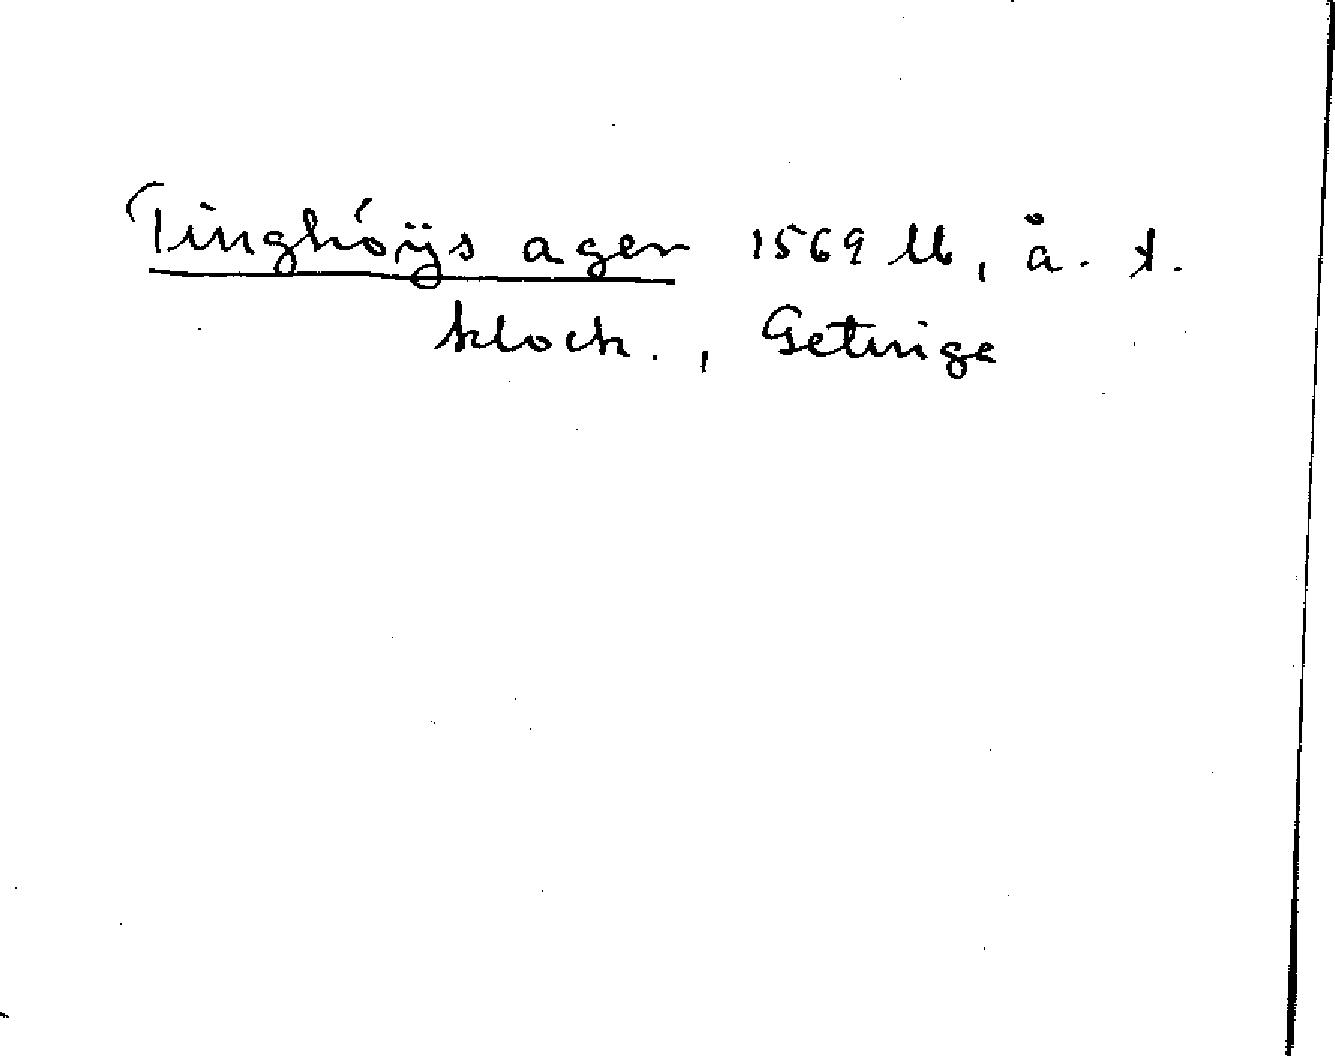 Tinghóÿs ager 1569 Lb, å. t.
klock., Getinge